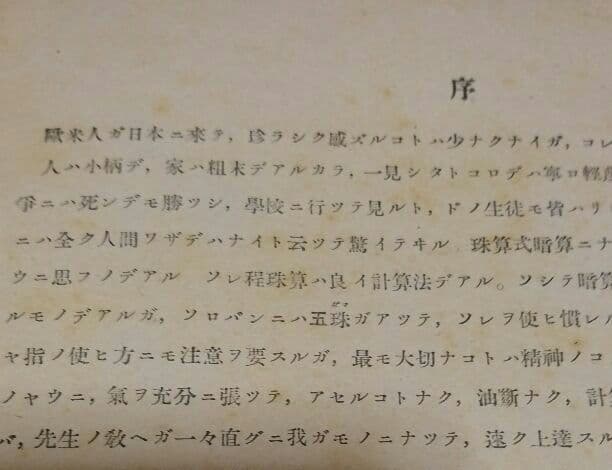 序
歐米人ガ日本ニ來テ, 珍ラシク感ズルコトハ少ナクナイガ, コレ
人ハ小柄デ, 家ハ粗末デアルカラ, 一見シタトコロデハ寧ロ輕蔑
爭ニハ死ンデモ勝ツシ, 學校ニ行ツテ見ルト, ドノ生徒モ皆ハリ
ニハ全ク人間ワザデハナイト云ツテ驚イテヰル 珠算式暗算ニナ
ウニ思フノデアル ソレ程珠算ハ良イ計算法デアル。ソシテ暗算
ルモノデアルガ, ソロバンニハ五珠ガアツテ, ソレヲ使ヒ慣レル
ャ指ノ使ヒ方ニモ注意ヲ要スルガ, 最モ大切ナコトハ精神ノコ
ノャウニ, 氣ヲ充分ニ張ツテ, アセルコトナク, 油斷ナク, 計算
バ, 先生ノ敎ヘガ一々直グニ我ガモノニナツテ, 速ク上達スル